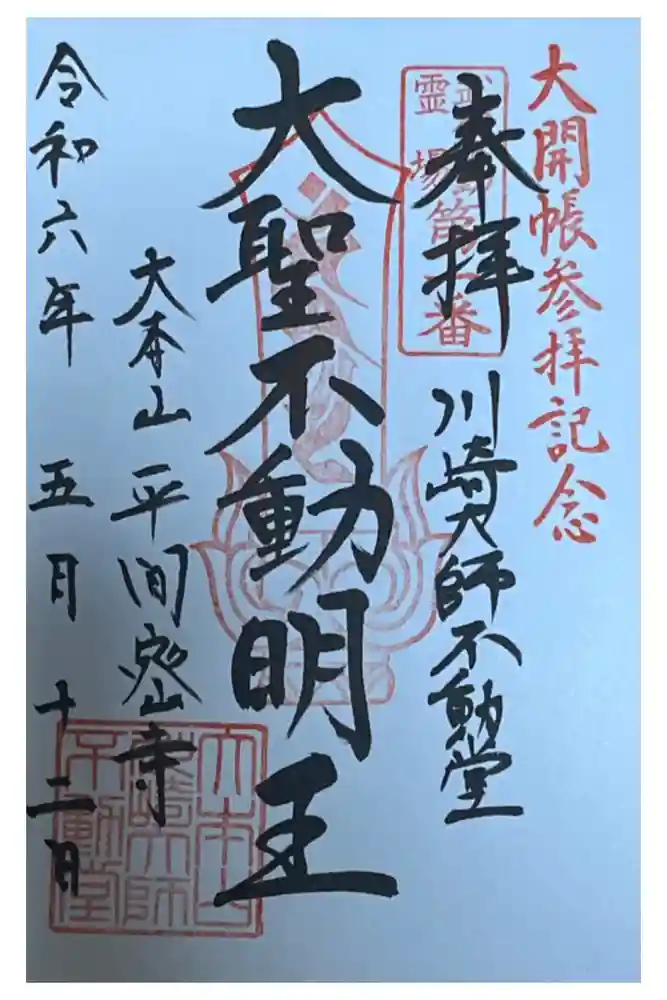 大開帳参拝記念
奉拝
川崎大師不動堂
大聖不動明王
大本山 平間密寺
令和六年 五月 十二日
霊場第一番
大本山
川崎大師
不動堂